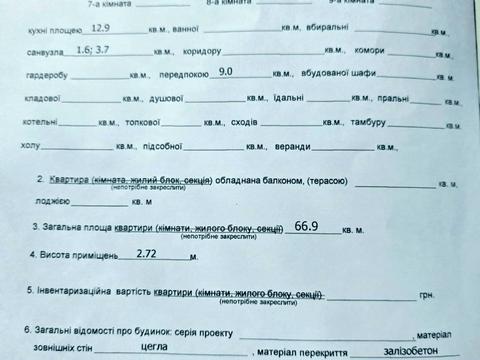 7-а кімната ______ 8-а кімната ______ 9-а кімната ______
кухні площею 12.9 кв.м, ванної ______ кв.м., вбиральні ______ кв.м,
санвузла 1.6; 3.7 кв.м, коридору ______ кв.м., комори ______ кв.м.,
гардеробу ______ кв.м., передпокою 9.0 кв.м., вбудованої шафи ______ кв. м
кладової ______ кв.м., душової ______ кв.м., їдальні ______ кв.м., пральні ______ кв.м,
котельні ______ кв.м., топкової ______ кв.м., сходів ______ кв.м., тамбуру ______ кв.м.
холу ______ кв.м., підсобної ______ кв.м., веранди ______ кв.м.,
2. Квартира (кімната, жилий блок, секція) обладнана балконом, (терасою) ______ кв. м,
(непотрібне закреслити)
лоджією ______ кв. м
3. Загальна площа квартири (кімнати, жилого блоку, секції) 66.9 кв. м.
(непотрібне закреслити)
4. Висота приміщень 2.72 м.
5. Інвентаризаційна вартість квартири (кімнати, жилого блоку, секції) ______ грн.
(непотрібне закреслити)
6. Загальні відомості про будинок: серія проекту ______, матеріал
зовнішніх стін цегла, матеріал перекриття залізобетон